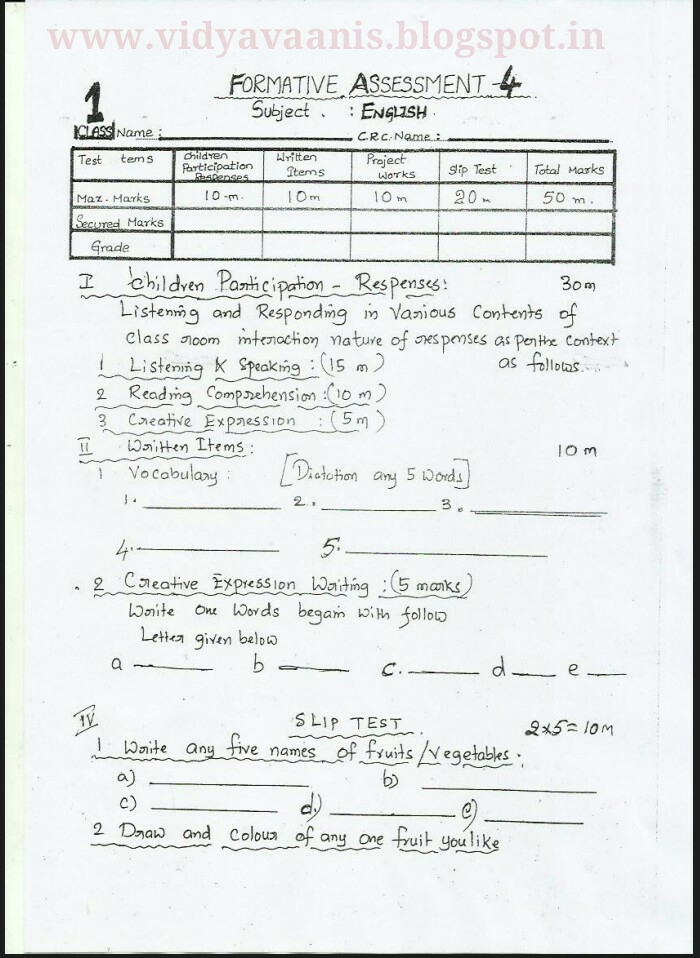 www.vidyavaanis.blogspot.in
FORMATIVE ASSESSMENT-4
Subject . : ENGLISH.
1
CLASS Name : C.R.C. Name :
Test tems Children Participation Respenses Written Items Project Works Slip Test Total Marks
Max. Marks 10 m. 10m 10m 20m 50 m.
Secured Marks
Grade
I Children Participation - Respenses: 30m
Listening and Responding in Various Contents of
class room interaction nature of responses as per the context
as follows....
1 Listening & Speaking : (15 m)
2 Reading Comprehension : (10 m)
3 Creative Expression : (5m)
II Written Items : 10m
1 Vocabulary : [Dictation any 5 words]
1. 2. 3.
4. 5.
2 Creative Expression Writing : (5 marks)
Write one words began with follow
Letter given below
a b c. d e
IV SLIP TEST. 2x5=10M
1 Write any five names of fruits/vegetables.
a) b)
c) d.) e)
2 Draw and colour of any one fruit you like